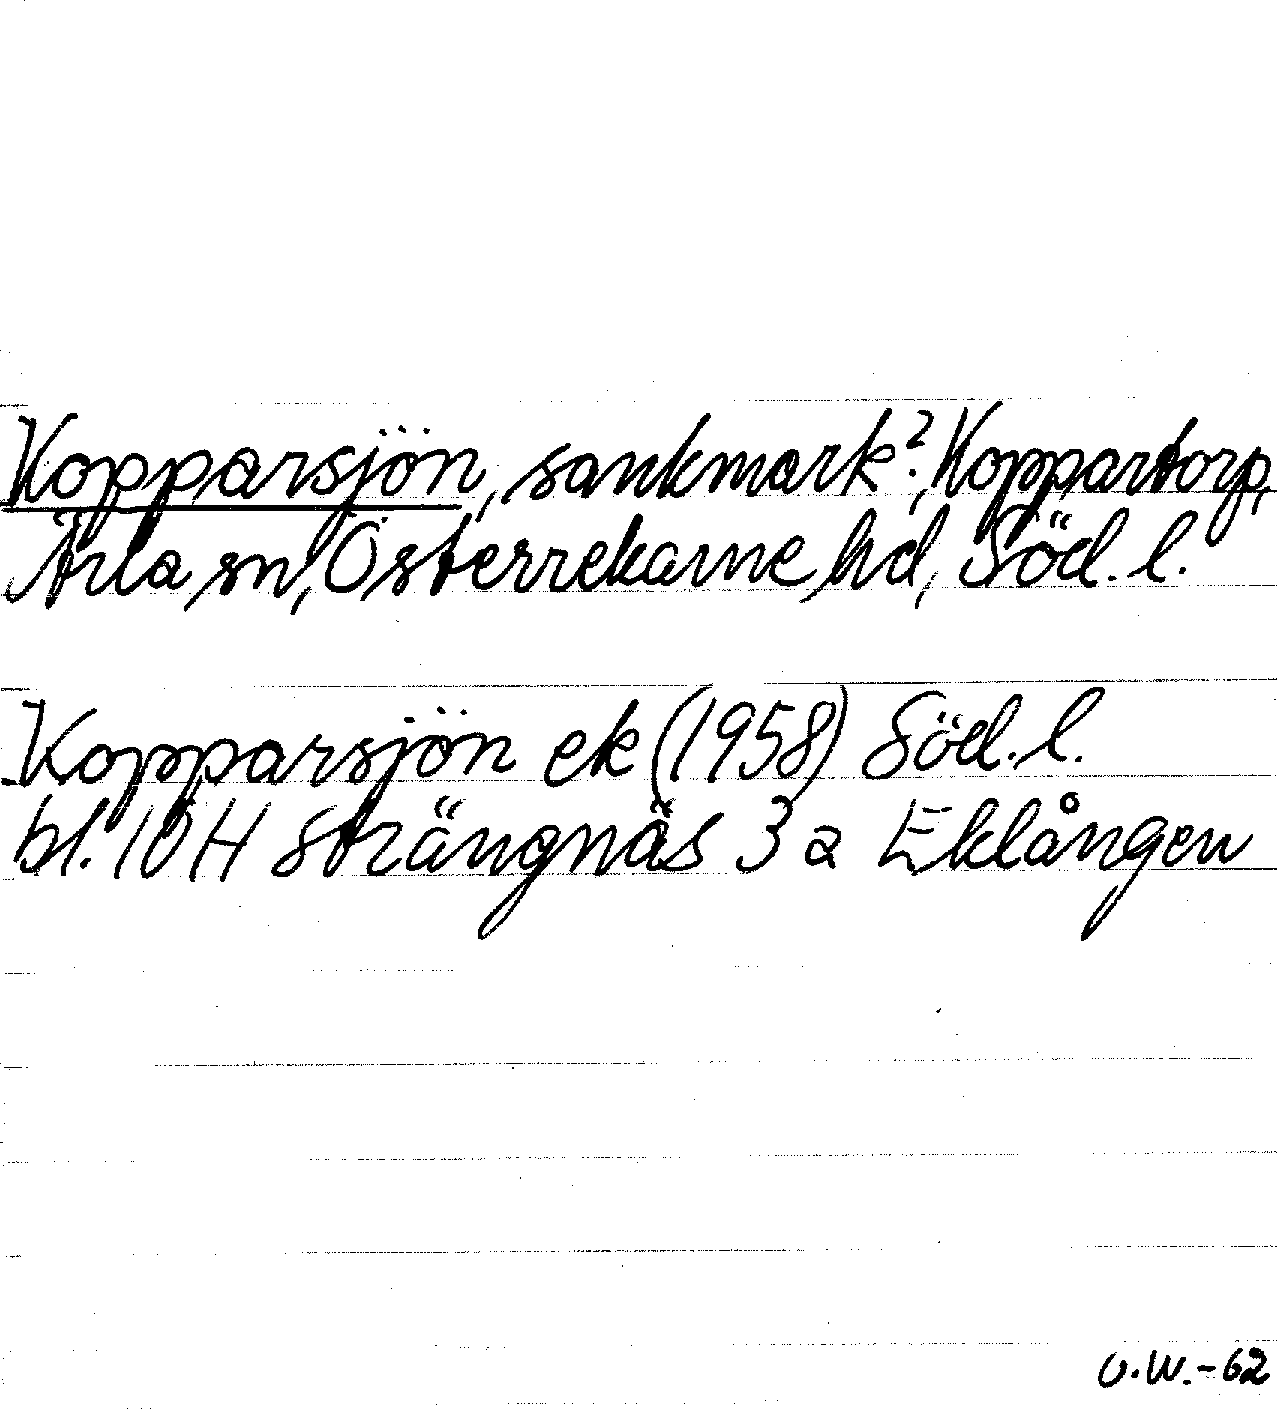 Kopparsjön, sankmark?, Koppartorp,
Ärla sn, Österrekarne hd, Söd. l.
Kopparsjön ek (1958) Söd. l.
bl. 10H Strängnäs 3 a Eklången
U.W.-62